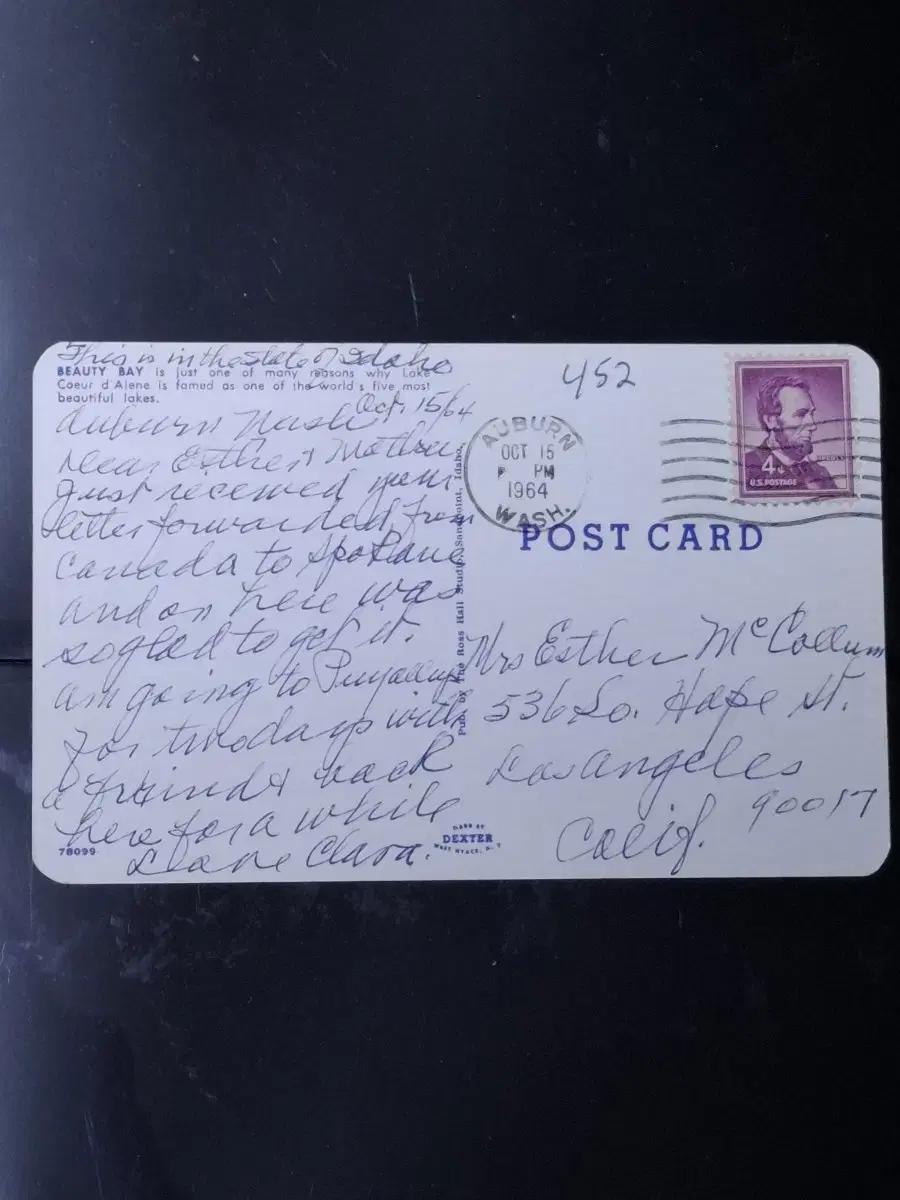 This is in the State of Idaho
BEAUTY BAY is just one of many reasons why Lake
Coeur d Alene is famed as one of the world s five most
beautiful lakes.
Oct. 15/64
Auburn Wash
Dear Esther & Mother
Just received your
letter forwarded from
Canada to Spokane
and on here was
so glad to get it.
am going to Puyallup
for two days with
a friend & back
here for a while
Love Clara.
78099
Pub. by The Ross Hall Studio, Sandpoint, Idaho.
MADE BY
DEXTER
WEST NYACK, N. Y.
452
AUBURN
OCT 15
P PM
1964
WASH.
4¢
LINCOLN
U.S. POSTAGE
POST CARD
Mrs Esther McCollum
536 So. Hope St.
Los Angeles
90017
Calif.